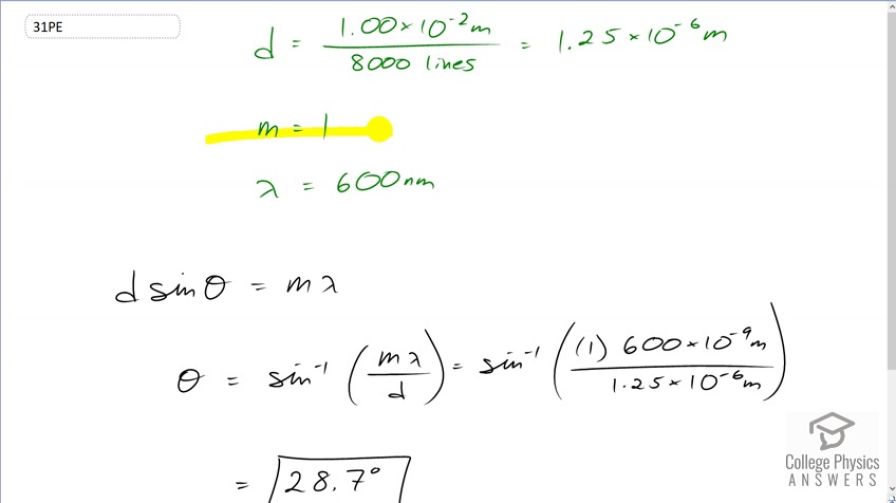 31PE
d = 1.00 × 10⁻² m / 8000 lines = 1.25 × 10⁻⁶ m
m = 1
λ = 600 nm
d sin θ = m λ
θ = sin⁻¹ (mλ / d) = sin⁻¹ ((1) 600 × 10⁻⁹ m / 1.25 × 10⁻⁶ m)
= 28.7°
College Physics
ANSWERS